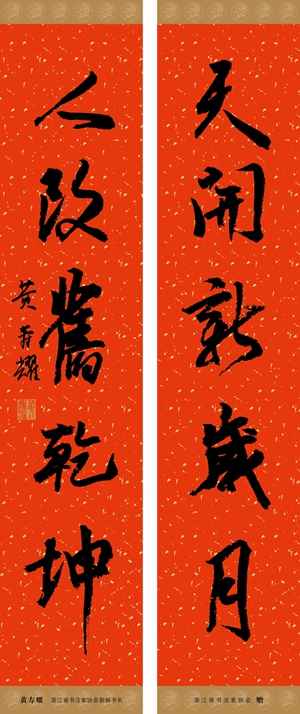 天開新歲月
人改舊乾坤
黄寿耀
浙江省书法家协会 赠
黄寿耀 浙江省书法家协会副秘书长